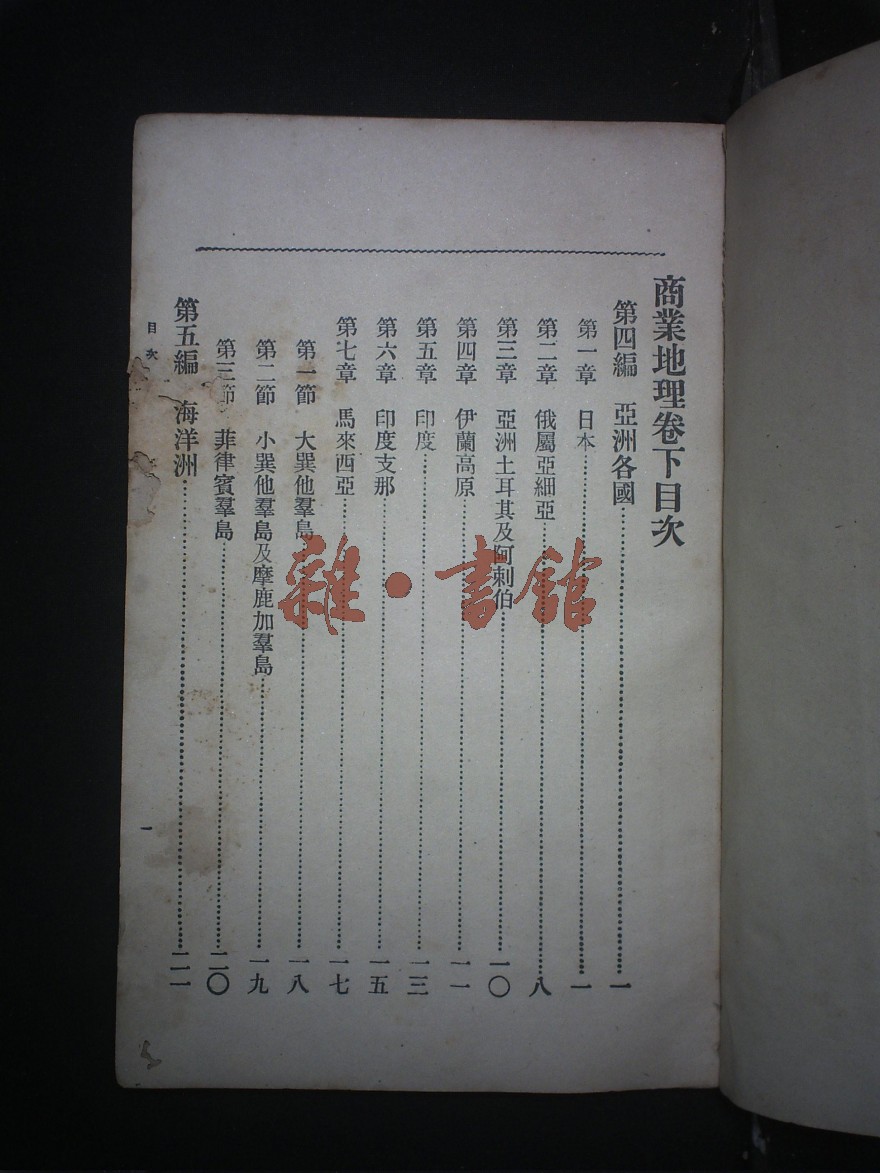 商業地理卷下目次
第四編 亞洲各國……一
第一章 日本……一
第二章 俄屬亞細亞……八
第三章 亞洲土耳其及阿剌伯……一〇
第四章 伊蘭高原……一一
第五章 印度……一三
第六章 印度支那……一五
第七章 馬來西亞……一七
第一節 大巽他羣島……一八
第二節 小巽他羣島及摩鹿加羣島……一九
第三節 菲律賓羣島……二〇
第五編 海洋洲……二一
目次 一
雜·書館